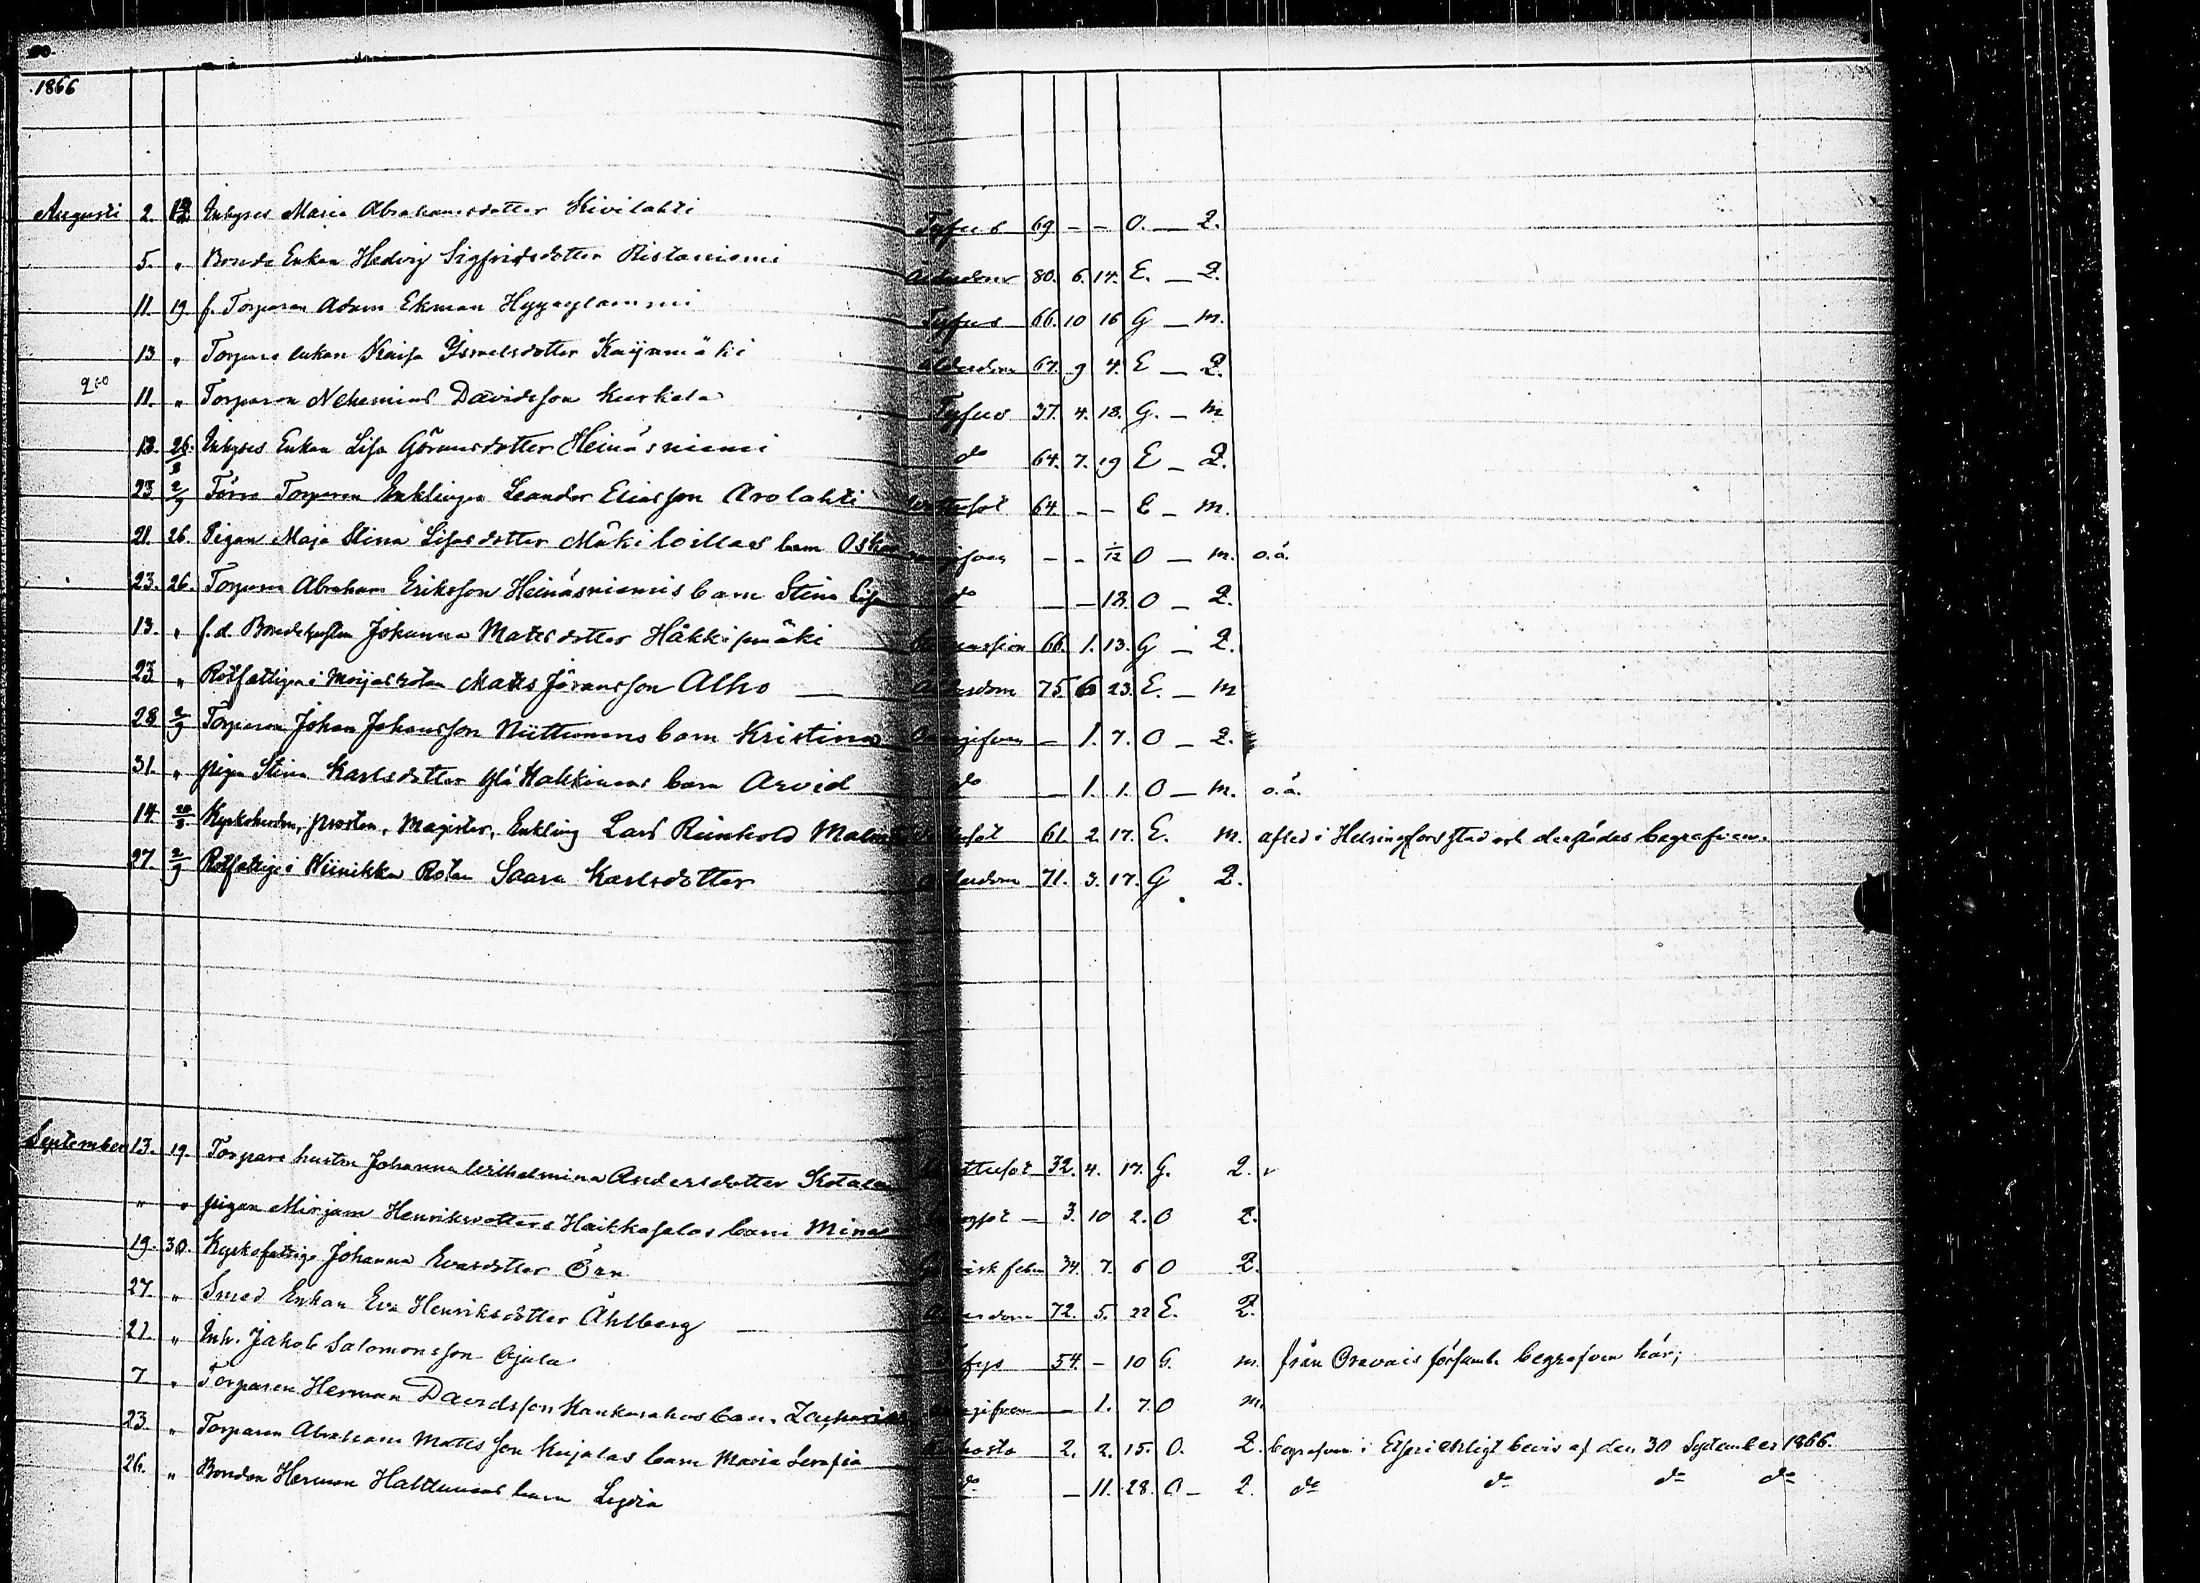 1866
Augusti 2 12 Inhyses Maria Abrahamsdotter Kivilahti Tyfus 69 - - O. — Q.
5. " Bonde Enkan Hedvig Sigfridsdotter Ristaniemi Ålderdom 80. 6. 14. E. — Q.
11. 19 f. Torparen Adam Ekman Hyypylammi Tyfus 66. 10 16 G — m.
13 " Torpare enkan Kaisa Ismelsdotter Käyrämäki ålderdom 67. 9 4. E — Q.
11. " Torparen Nehemias Davidsson Kurkela Tyfus 37. 4. 18. G. — m
18. 26/8 Inhyses Enkan Lisa Göransdotter Heinäsniemi do 64. 7. 19 E — Q.
23 2/9 Förre Torparen Enklingen Leander Eliasson Arolahti 64. - - E — m.
21. 26. Pigan Maja Stina Lisasdotter Mäkiloillas barn Oskar - - 1/12 O — m. o.ä.
23. 26. Torparen Abraham Eriksson Heinäsniemis barn Stina Lisa do — — 18. O — Q.
13. " f.d. Bondehustrun Johanna Matsdotter Häkkismäki 66. 1. 13. G — Q.
23. " Rotfattigen i rotan Matts Jöransson Alho — Ålderdom 75 6 23. E. — m
28 2/9 Torparen Johan Johansson Niittumens barn Kristina Oangifven — 1. 7. O — Q.
31. " pigan Stina Karlsdotter Yli Hakkinens barn Arvid do — 1. 1. O — m. o.ä.
14 20/8 Kyrkoherden, prosten, Magister, Enkling Lars Reinhold 61. 2 17. E. m. afled i Helsingfors stad och derstädes begrafven.
27. 2/9 Rotfattige i Niinikka Rotan Saara Karlsdotter Ålderdom 71. 3. 17. G Q.
September 13. 19. Torpare hustru Johanna Wilhelmina Andersdotter Kotala 32. 4. 17. G. Q.
" " pigan Mirjam Henriksdotters Haikkasalos barn Mina — 3. 10 2. O Q.
19. 30. Kyrkofattige Johanna Evasdotter Örn feber 34. 7. 6 O Q.
27. " Smed Enkan Eva Henriksdotter Åhlberg — Ålderdom 72. 5. 22 E. Q.
21. " Inh. Jakob Salomonsson Ojala 54. — 10 G. m. från Oravais församl. begrafven här;
7 " Torparen Herman Davidsson barn Zacharias Oangifven — 1. 7. O m.
23. " Torparen Abraham Mattsson Kujalas barn Maria Serafia Kikhosta 2. 2. 15. O. Q. begrafven i Etseri enligt bevis af den 30 September 1866.
26. " Bonden Herman Halttunens barn Lydia do — 11. 28. O — Q. do do do do